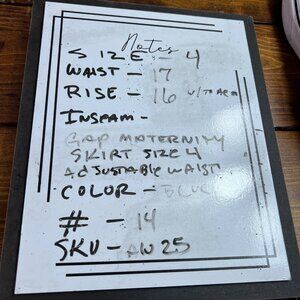 Notes
SIZE - 4
WAIST - 17
RISE - 16
INSEAM -
GAP MATERNITY
SKIRT SIZE 4
ADJUSTABLE WAIST
COLOR - BLUE
# - 14
SKU - AW25